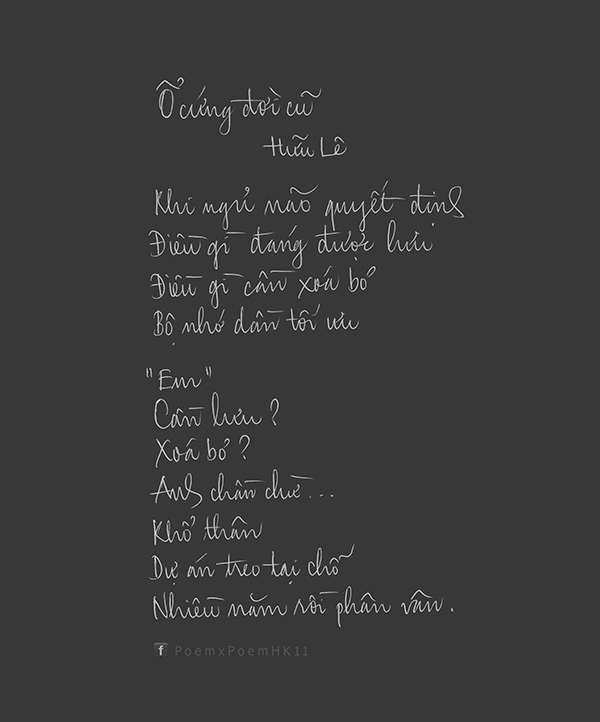 Ổ cứng đời cũ
Hữu Lê
Khi ngủ não quyết định
Điều gì đáng được lưu
Điều gì cần xoá bỏ
Bộ nhớ dần tối ưu
"Em"
Cần lưu?
Xoá bỏ?
Anh chần chừ...
Khổ thân
Dự án treo tại chỗ
Nhiều năm rồi phân vân.
f PoemxPoemHK11